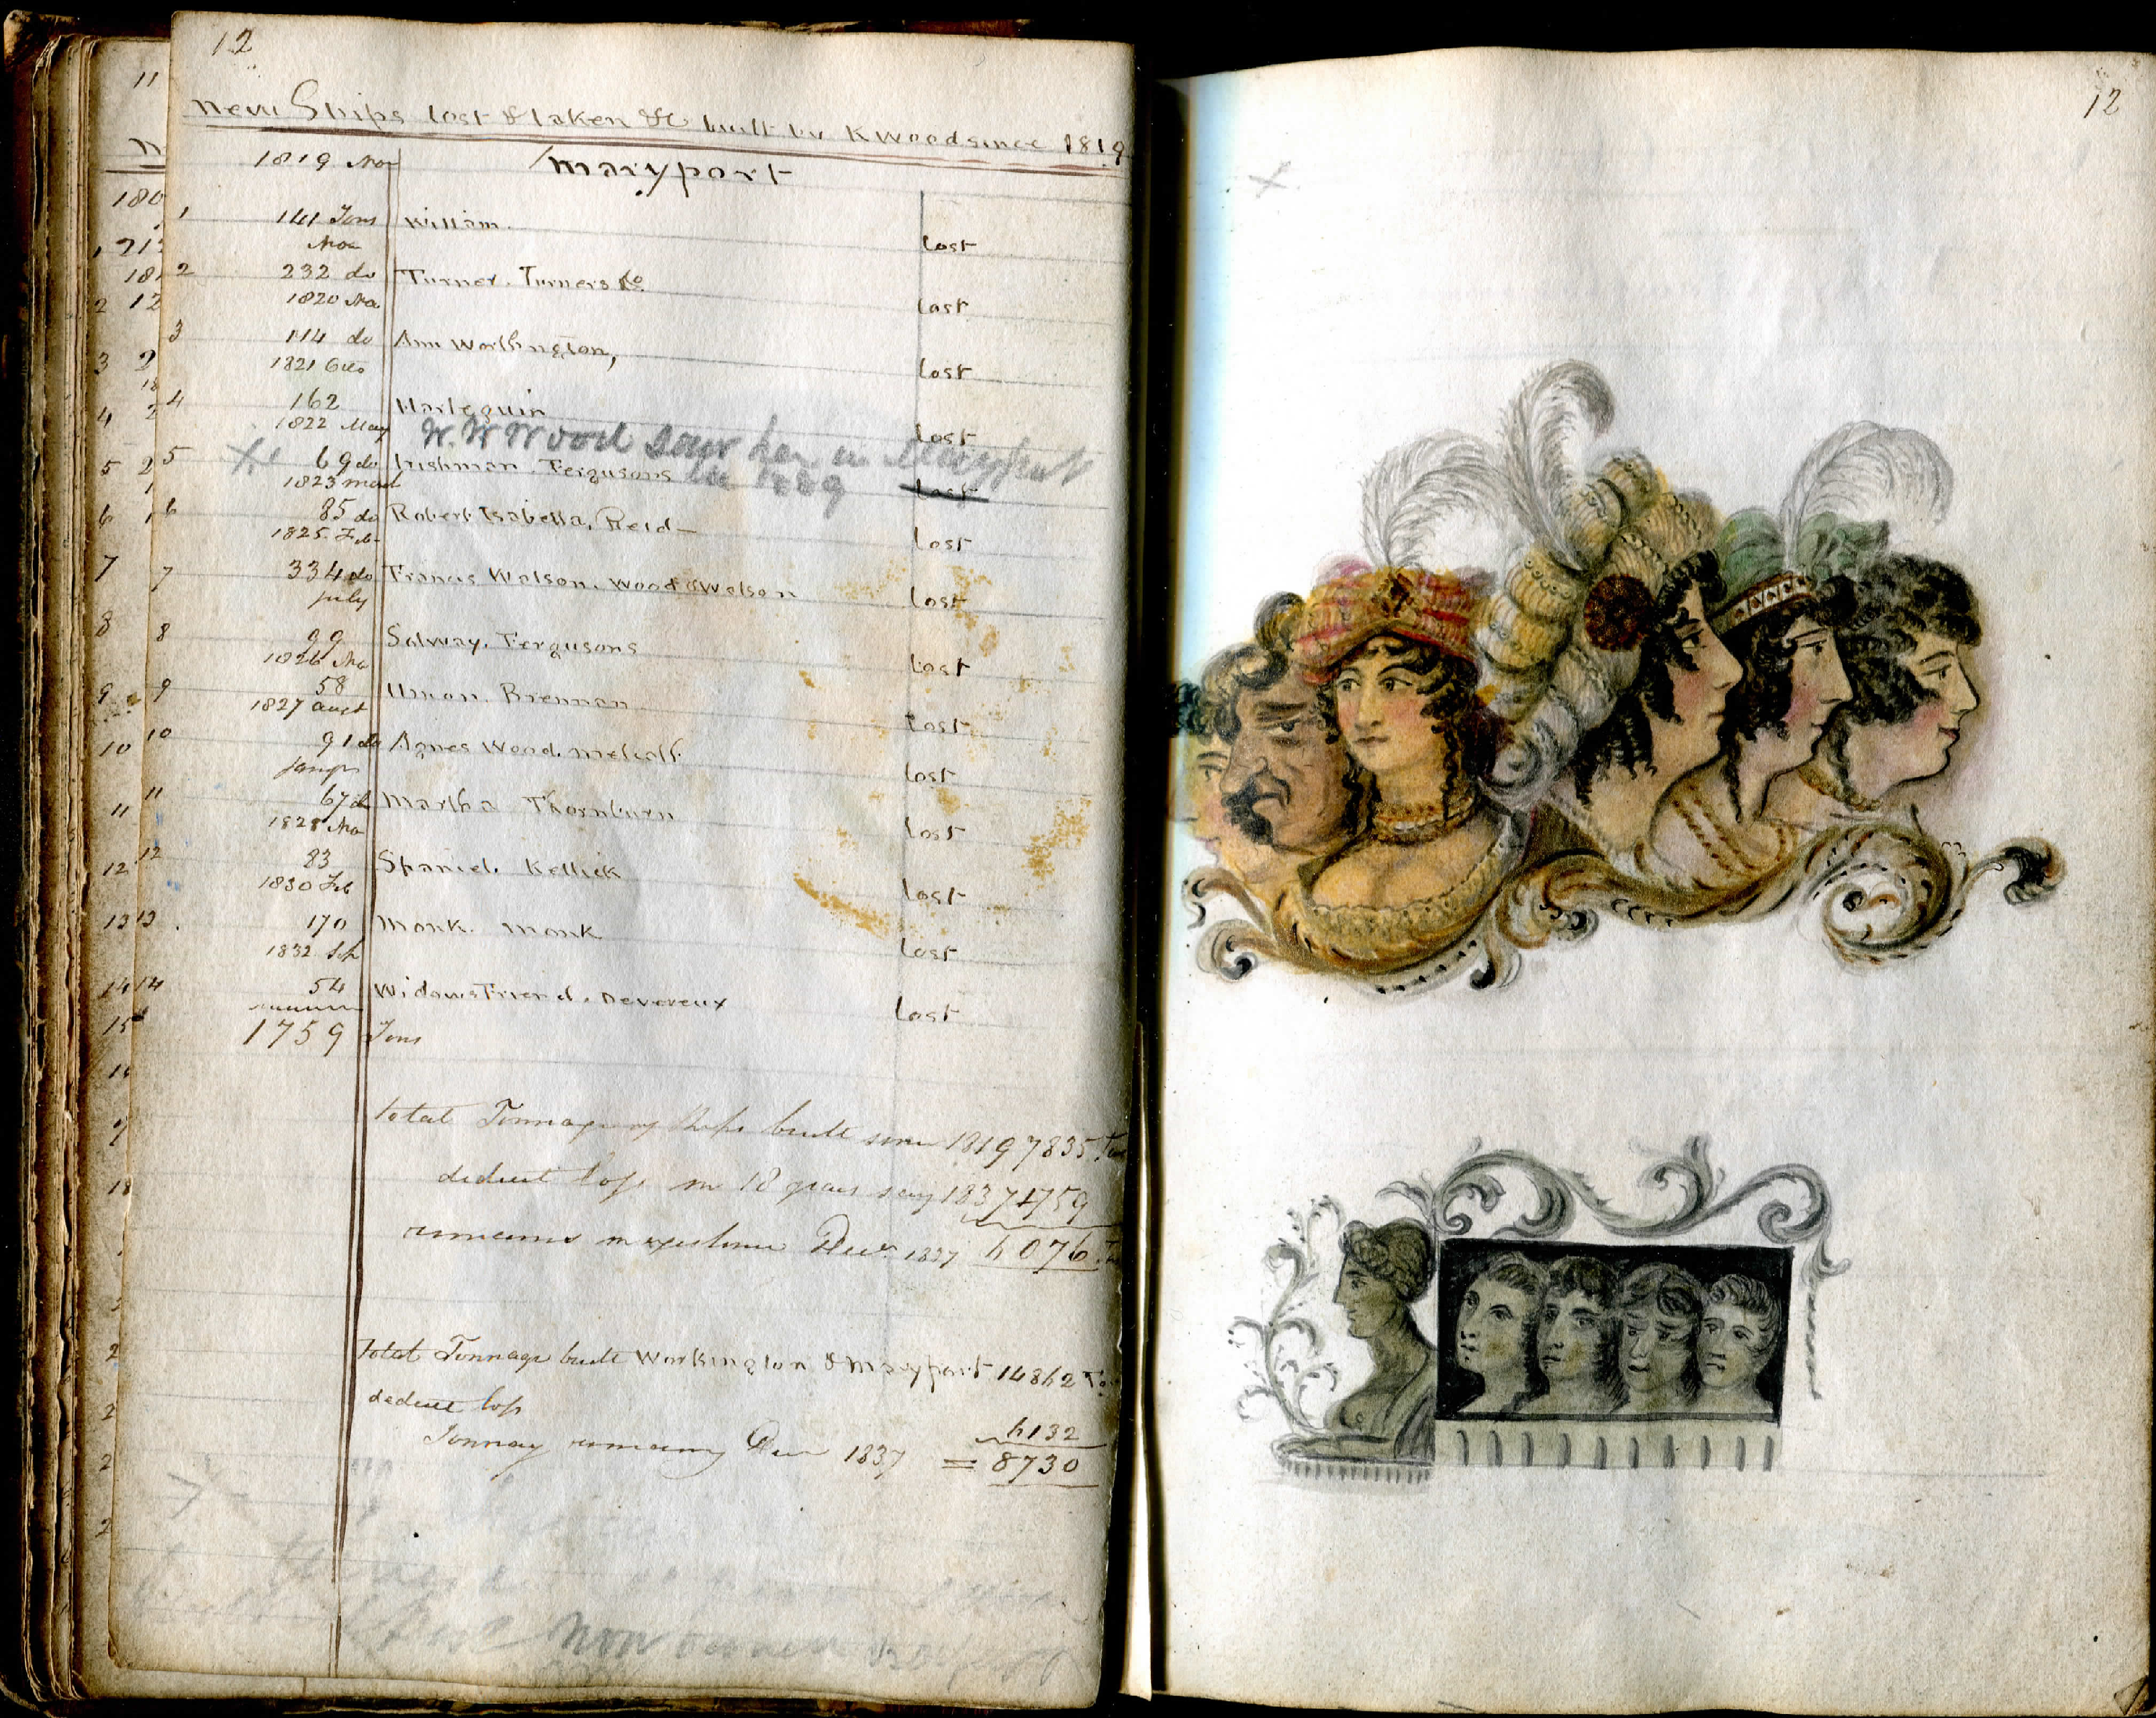 12
New Ships lost & taken &c built by K Wood since 1819
1819 Nov Maryport
1 141 Tons William. lost
Nov
2 232 do Turner. Turners &Co lost
1820 Nov
3 114 do Ann Worthington, lost
1821
4 162 Harlequin lost
1822 May W. W Wood saw her in Maryport
5 69 do Irishman. Fergusons in 1889 lost
1823
6 85 do Robert Isabella. Reid – lost
1825 Feb
7 334 do Francis Watson. Wood & Watson lost
July
8 99 Solway. Fergusons lost
1826 Nov
9 58 Union. Brennan lost
1827 Augt
10 91 do Agnes Wood. Metcalf. lost
11 67 do Martha Thornburn lost
1828 Nov
12 83 Spaniel. Kellick lost
1830 Feb
13 170 Monk. Monk lost
1832 Sep
14 54 Widows Friend. Devereux lost
1759 Tons
total Tonnage of Ships built since 1819 7835 Tons
deduct loss in 18 years say 1837 1759
remains in existence Decr 1837 6076
total Tonnage built Workington & Maryport 14862
deduct loss
6132
Tonnage remaining Decr 1837 = 8730
now
11
180
1 212
2 12
3 2
4 2
5 2
6
7
8
9
10
11
12
13
14
15
16
18
12
x